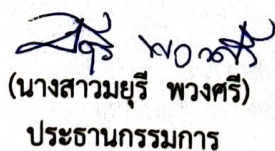 (นางสาวมยุรี พวงศรี)
ประธานกรรมการ